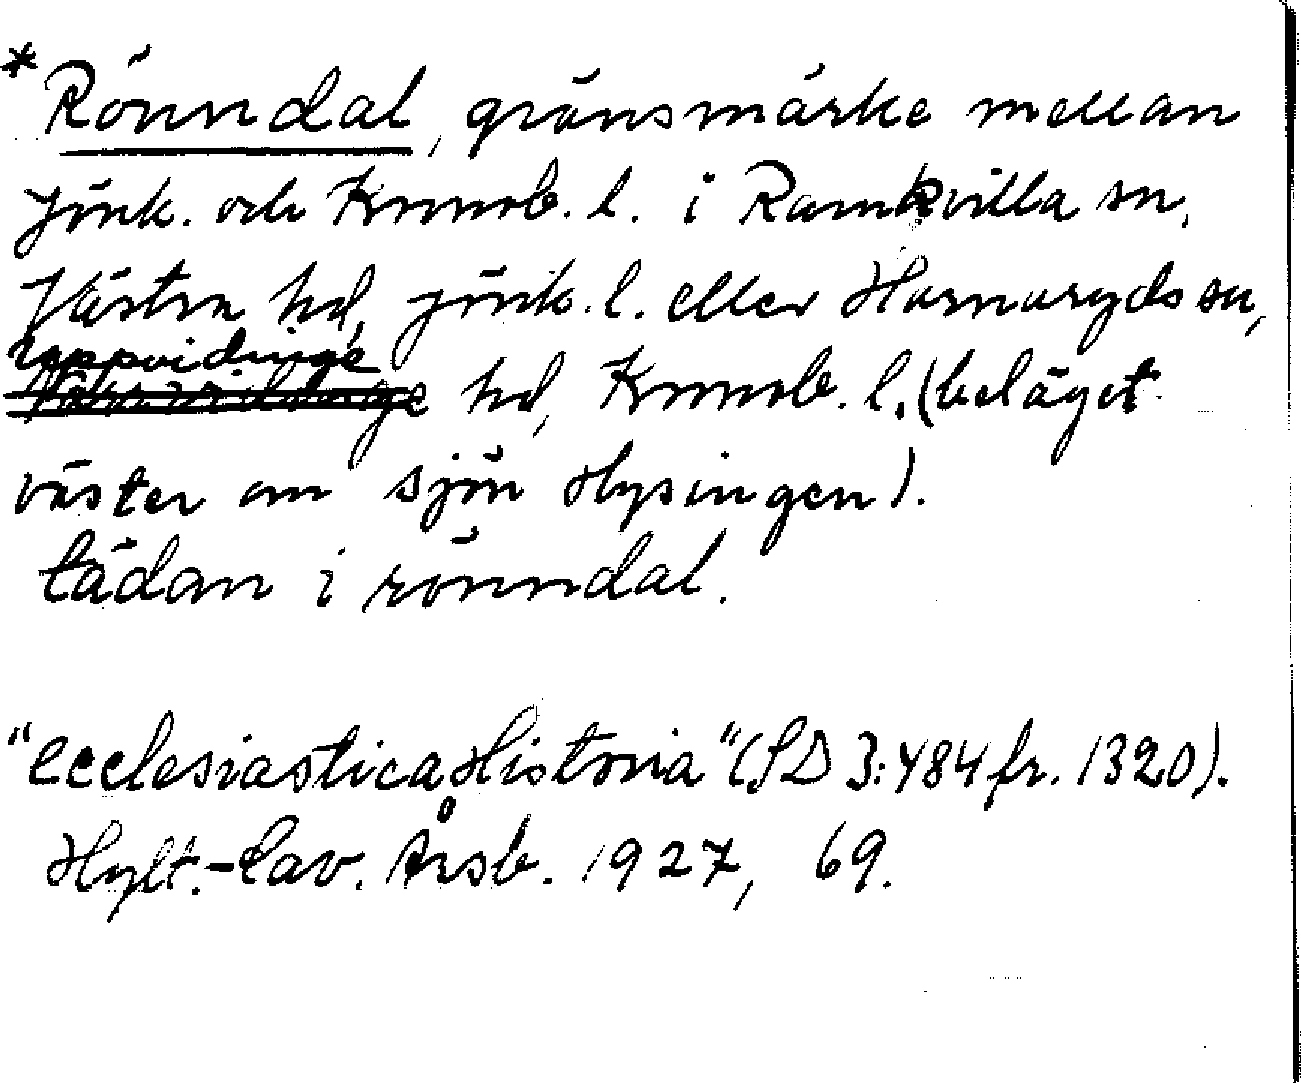 *Rönndal, gränsmärke mellan
Jönk. och Kronob. l. i Ramkvilla sn,
Västra hd, Jönk. l. eller Hornaryds sn,
Uppvidinge
hd, Kronob. l. (beläget
väster om sjön Hysingen).
tädan i rönndal.
"Ecclesiastica Historia" (SD 3:484 fr. 1320).
Hylt.-Cav. Årsb. 1927, 69.